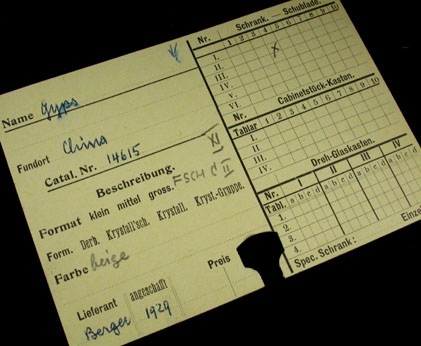 Name Gyps
Fundort China
Catal. Nr. 14615
XI
Beschreibung.
Format klein mittel gross.
Form. Derb. Krystall'sch. Krystall. Kryst.-Gruppe.
Farbe beige
Lieferant angeschafft Preis
Berger 1929
Nr. Schrank. Schublade.
1 2 3 4 5 6 7 8 9 10
I. x
II.
III.
IV.
V.
VI.
Nr. Cabinetstück-Kasten.
Tablar 1 2 3 4 5 6 7 8 9 10
I.
II.
III.
IV.
Dreh-Glaskasten.
Nr. I II III IV
Tabl. a b c d a b c d a b c d a b c d
1.
2.
3.
4.
Spec. Schrank: Einze